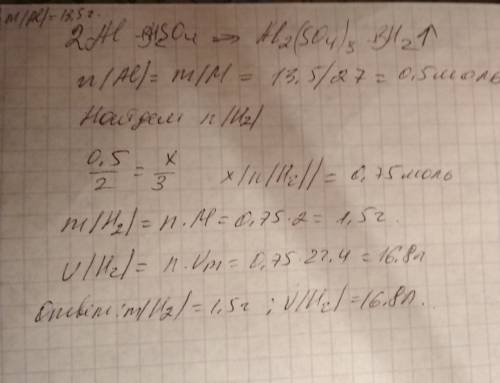 m/Al/=13.5г.
2Al + 3H2SO4 => Al2(SO4)3 + 3H2↑
n/Al/ = m/M = 13.5/27 = 0.5моль
Найдем n/H2/
0.5/2 = x/3 x/n/H2// = 0,75моль
m/H2/ = n·M = 0,75·2 = 1,5г.
V/H2/ = n·Vm = 0,75·22,4 = 16.8л
Ответ: m/H2/ = 1,5г ; V/H2/ = 16.8л.